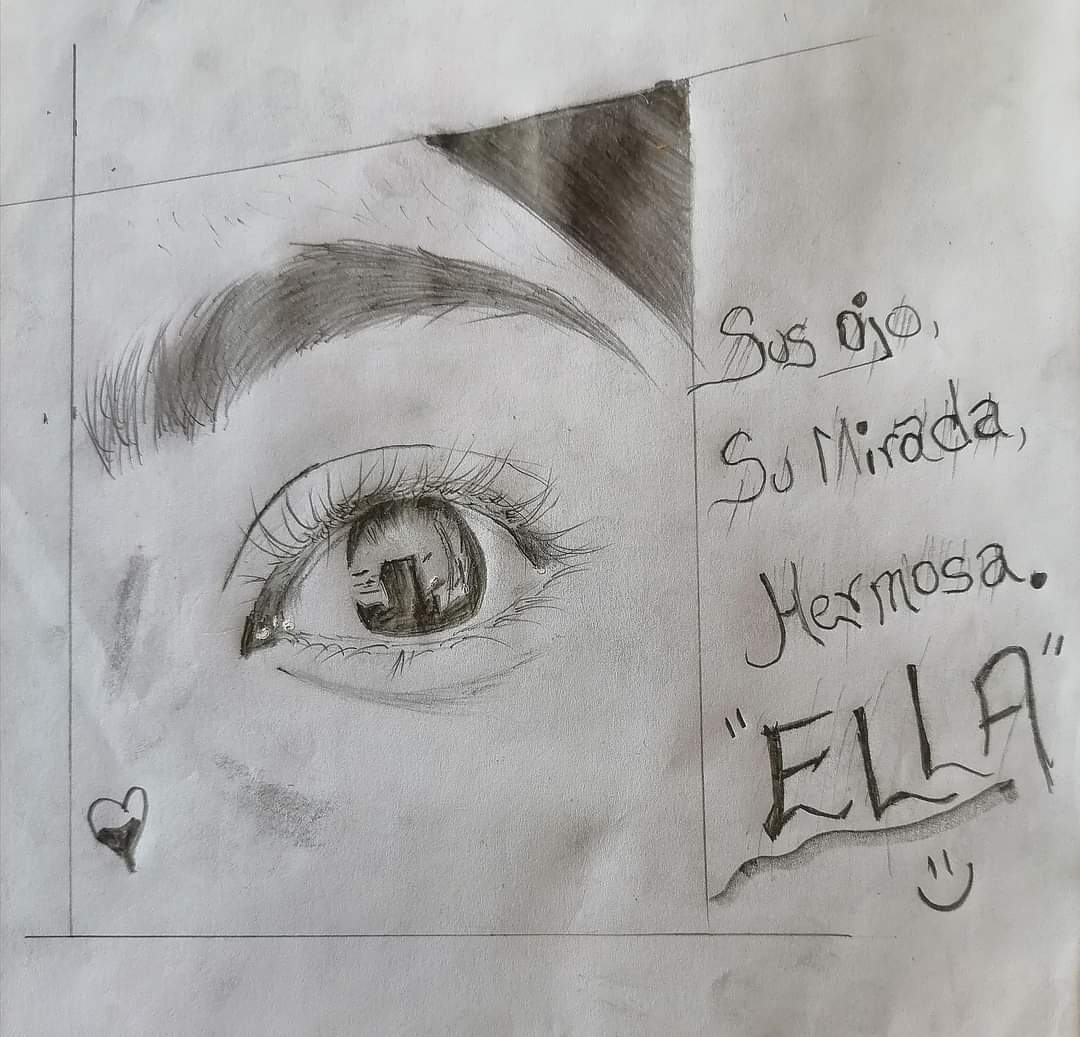 Sus ojo,
Su Mirada,
Hermosa.
"ELLA"